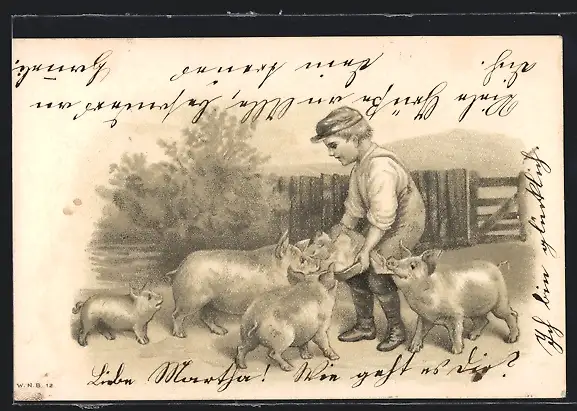 Liebe Martha! Wie geht es Dir?
Ich bin glücklich.
Viele Grüße an Alle, besonders an
Dich. Dein
W.N.B. 12